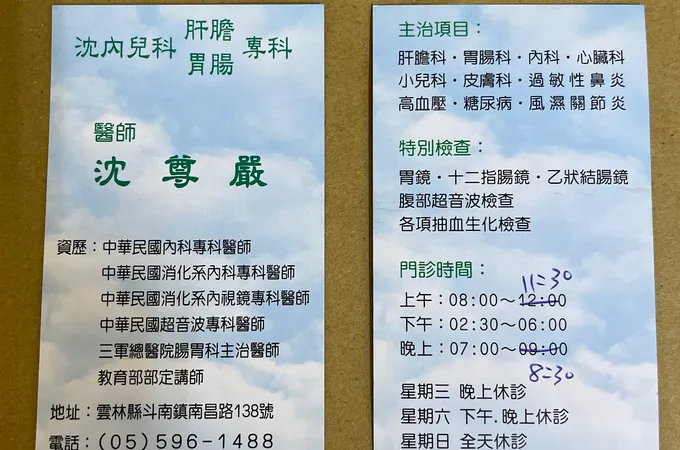 沈內兒科 肝膽 專科
胃腸
醫師
沈尊嚴
資歷：中華民國內科專科醫師
中華民國消化系內科專科醫師
中華民國消化系內視鏡專科醫師
中華民國超音波專科醫師
三軍總醫院腸胃科主治醫師
教育部部定講師
地址：雲林縣斗南鎮南昌路138號
電話：(05)596-1488
主治項目：
肝膽科・胃腸科・內科・心臟科
小兒科・皮膚科・過敏性鼻炎
高血壓・糖尿病・風濕關節炎
特別檢查：
胃鏡・十二指腸鏡・乙狀結腸鏡
腹部超音波檢查
各項抽血生化檢查
門診時間：
11:30
上午：08:00～12:00
下午：02:30～06:00
晚上：07:00～09:00
8:30
星期三 晚上休診
星期六 下午.晚上休診
星期日 全天休診